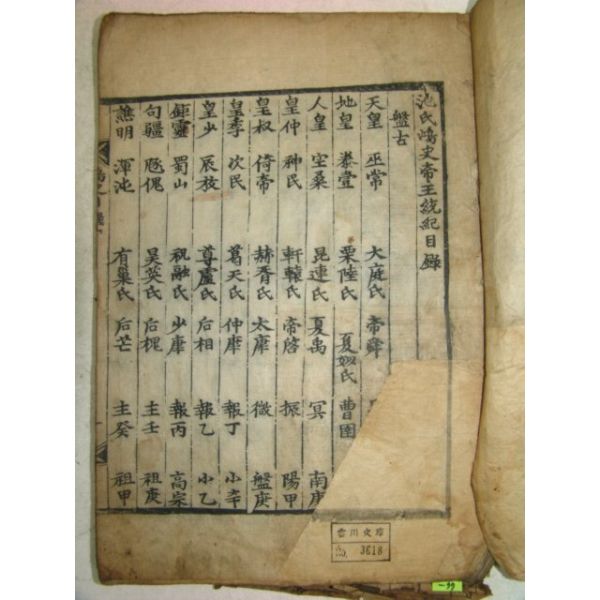 池氏鴻史帝王統紀目錄
盤古
天皇 巫常 大庭氏 帝舜
地皇 泰壹 栗陸氏 夏姒氏 曹圉
人皇 空桑 昆連氏 夏禹 冥 南庚
皇仲 神氏 軒轅氏 帝啓 振 陽甲
皇叔 倚帝 赫胥氏 太康 微 盤庚
皇季 次民 葛天氏 仲康 報丁 小辛
皇少 辰放 尊盧氏 后相 報乙 小乙
鉅靈 蜀山 祝融氏 少康 報丙 高宗
句疆 豗傀 昊英氏 后槐 主壬 祖庚
譙明 渾沌 有巢氏 后芒 主癸 祖甲
鴻史目錄
雲川文庫
No. 3618